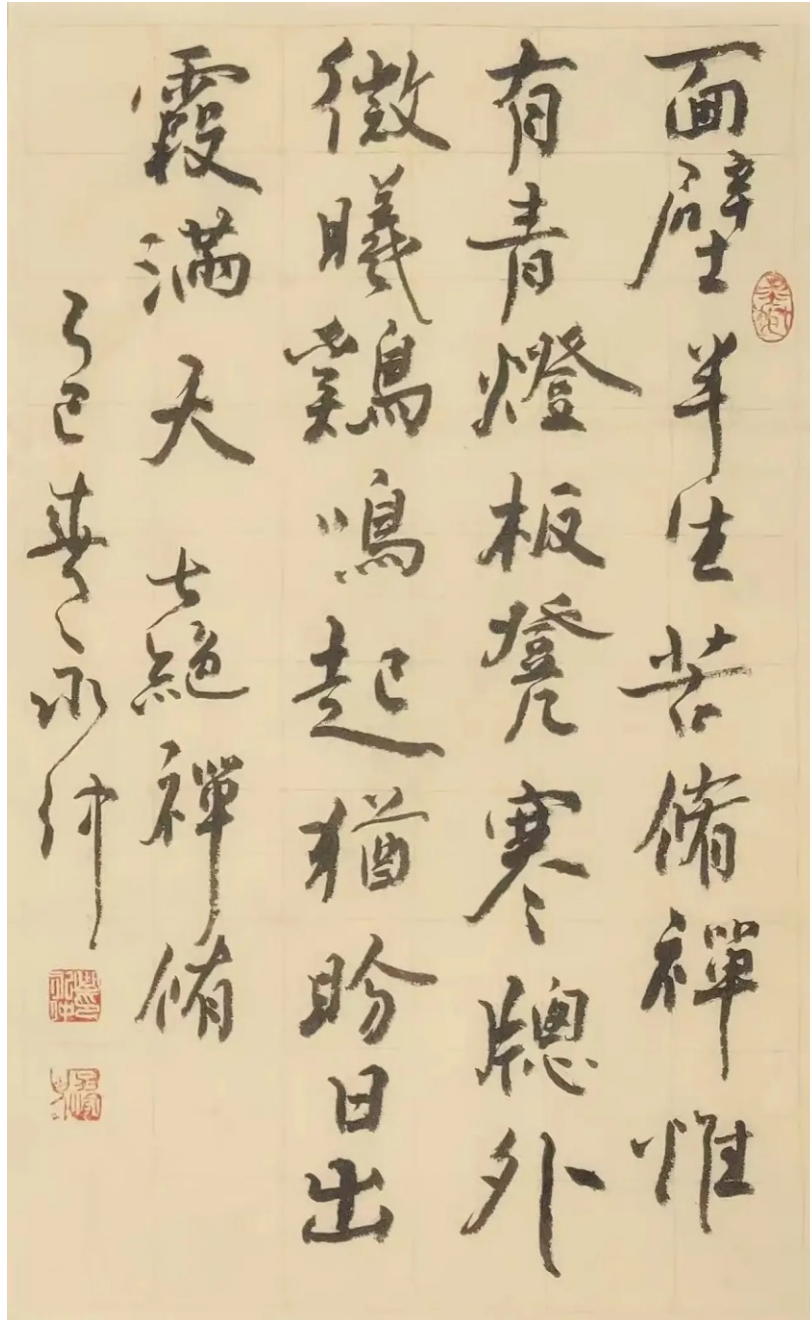 面壁半生苦脩禪惟
有青燈板凳寒牕外
微曦鷄鳴起猶盼日出
霞滿天 七絕禪脩
乙巳春永仲